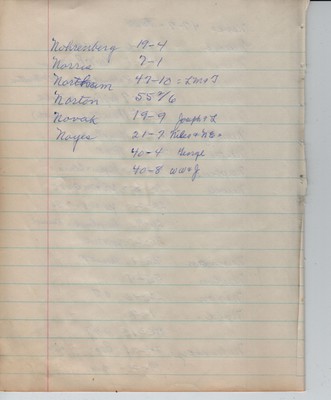 Nohrenberg 19-4
Norris 7-1
Northum 47-10 = L.W. + J
Norton 55 2/6
Novak 19-9 Joseph + L
Noyes 21-7
40-4 George
40-8 WW + J.